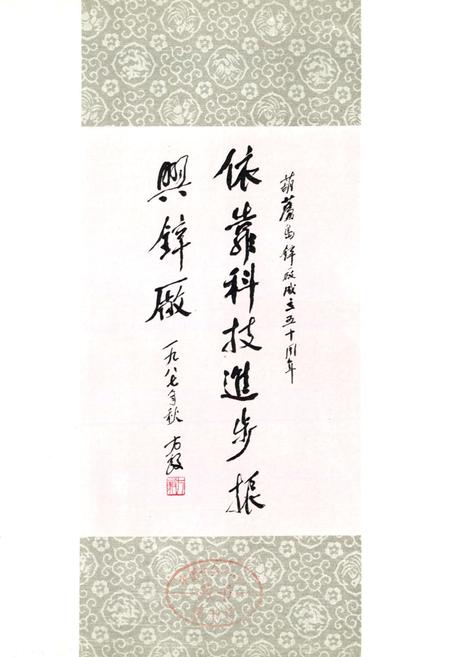 葫蘆島鋅厰成立五十周年
依靠科技進步振
興鋅厰
一九八七年秋 方毅